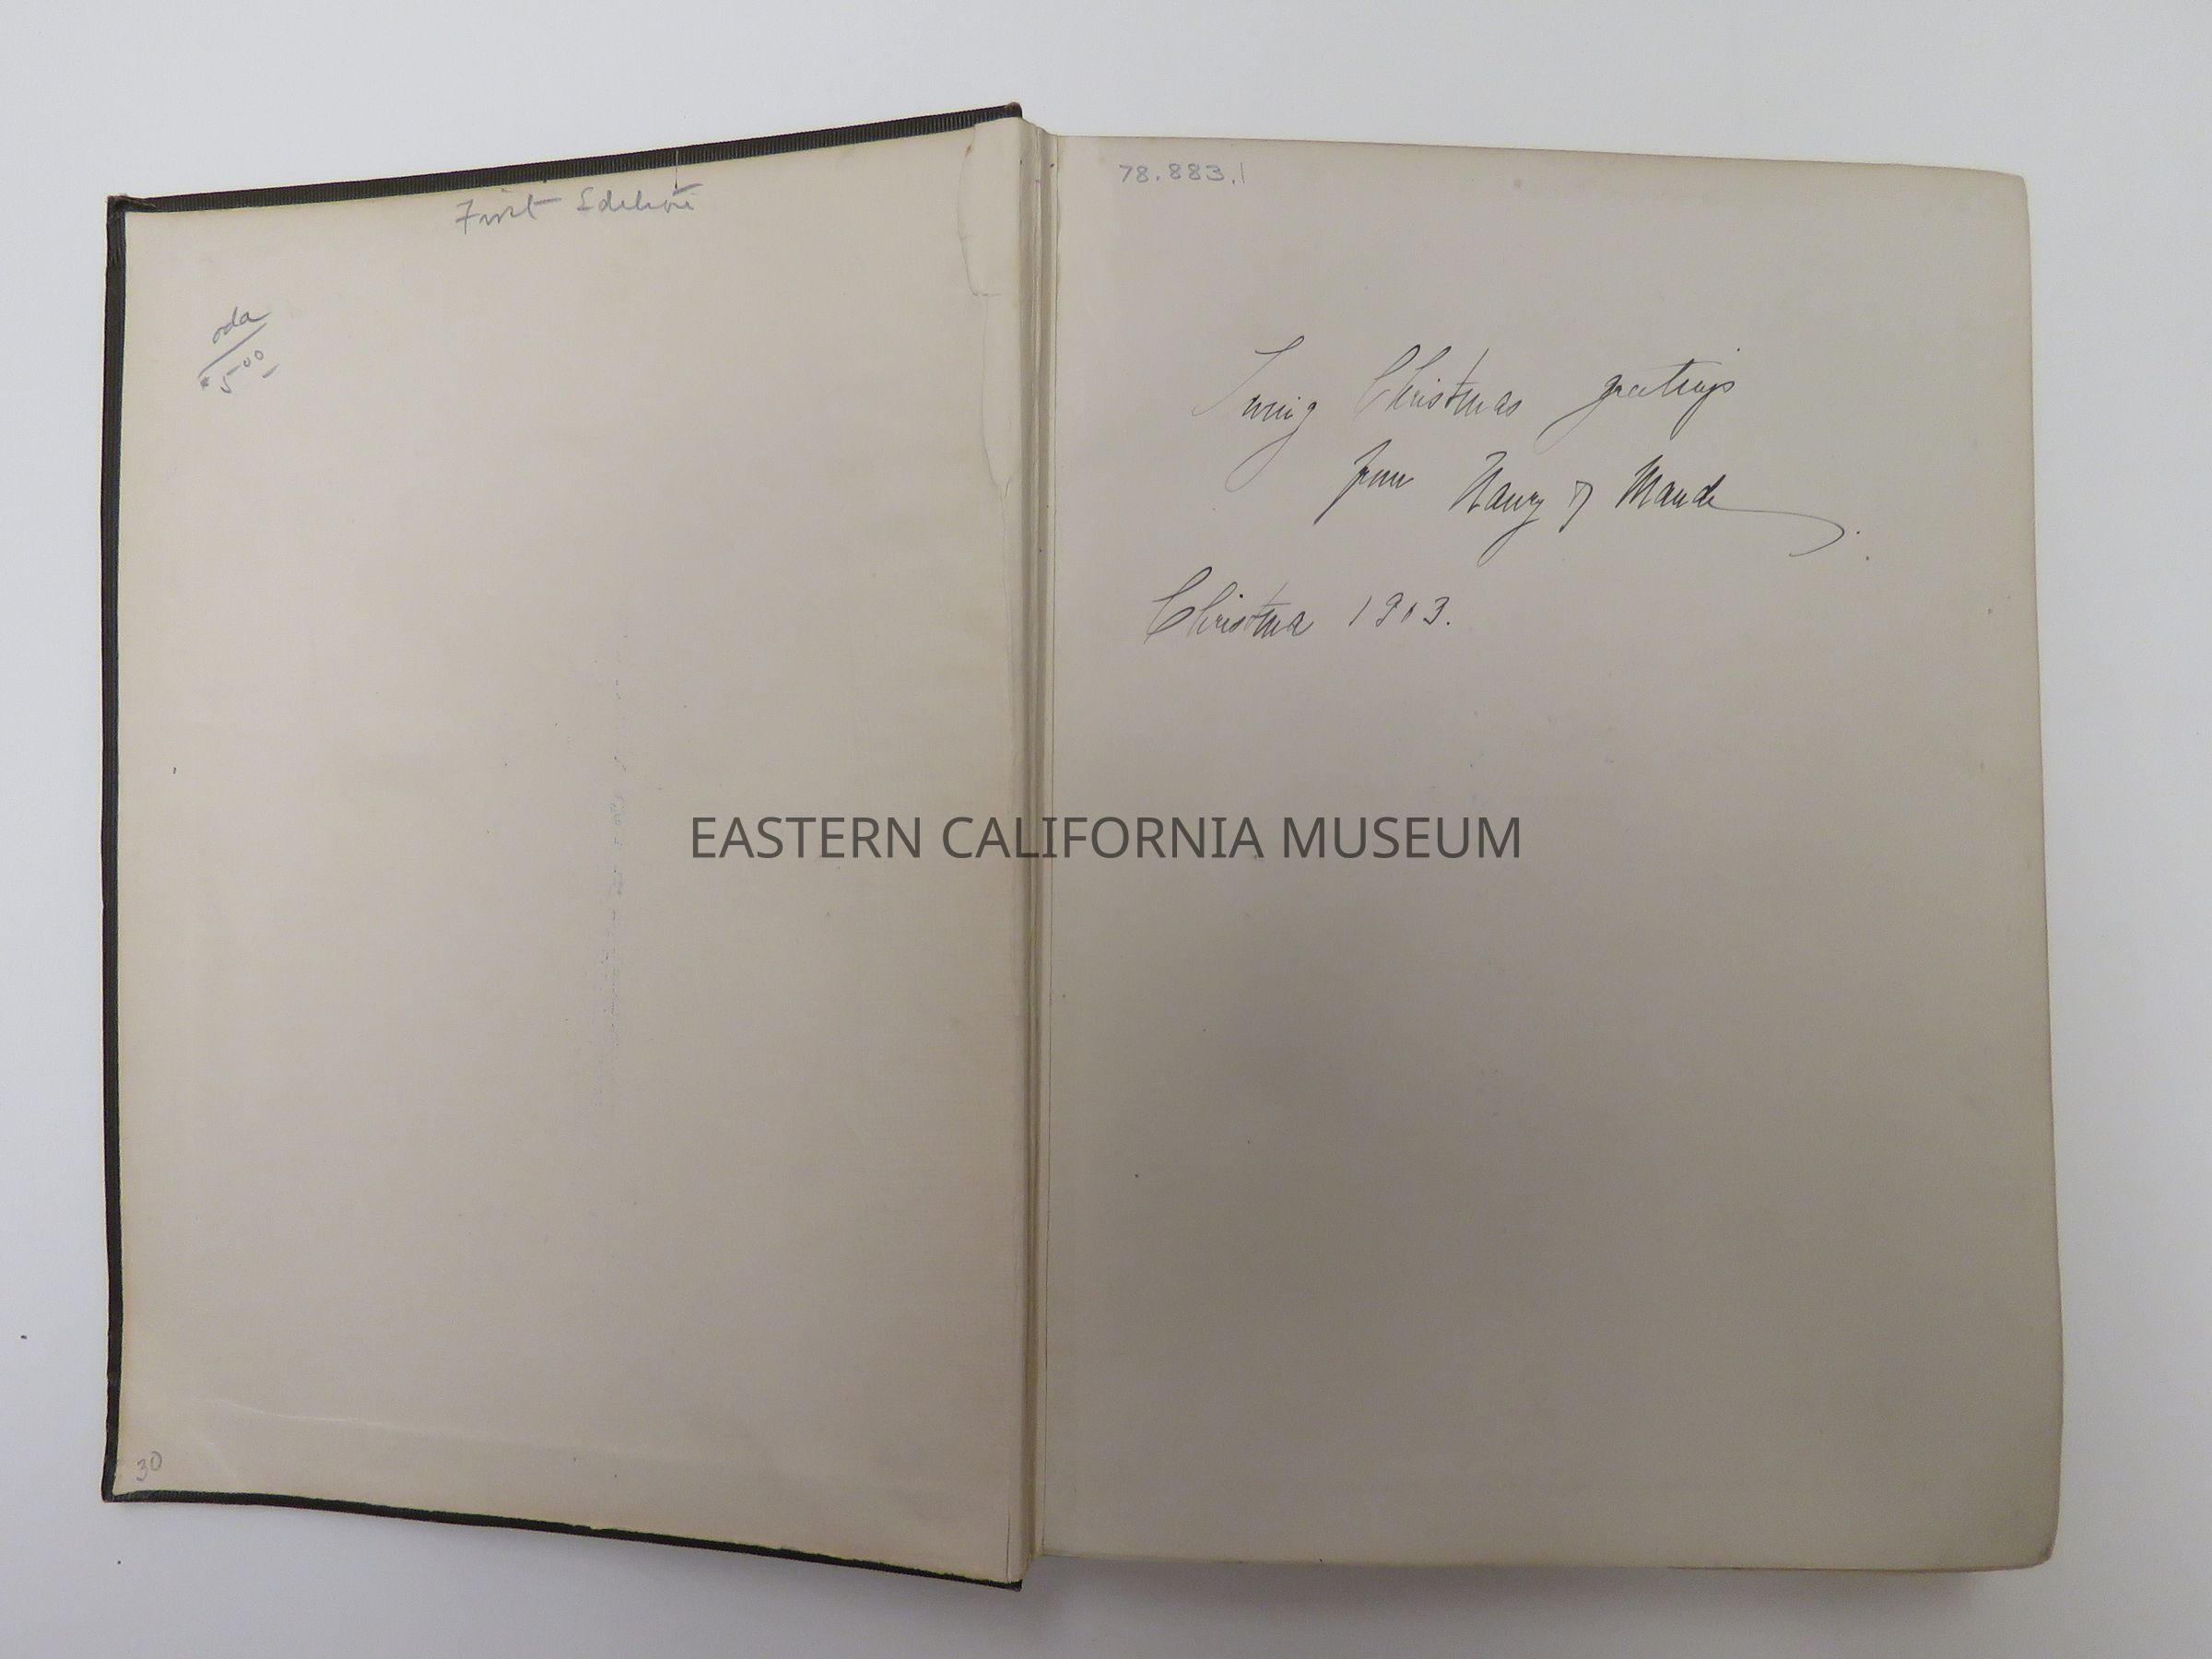 First Edition
oda
$5.00
30
78.883.1
Loving Christmas greetings
from Harry & Maude.
Christmas 1903.
EASTERN CALIFORNIA MUSEUM